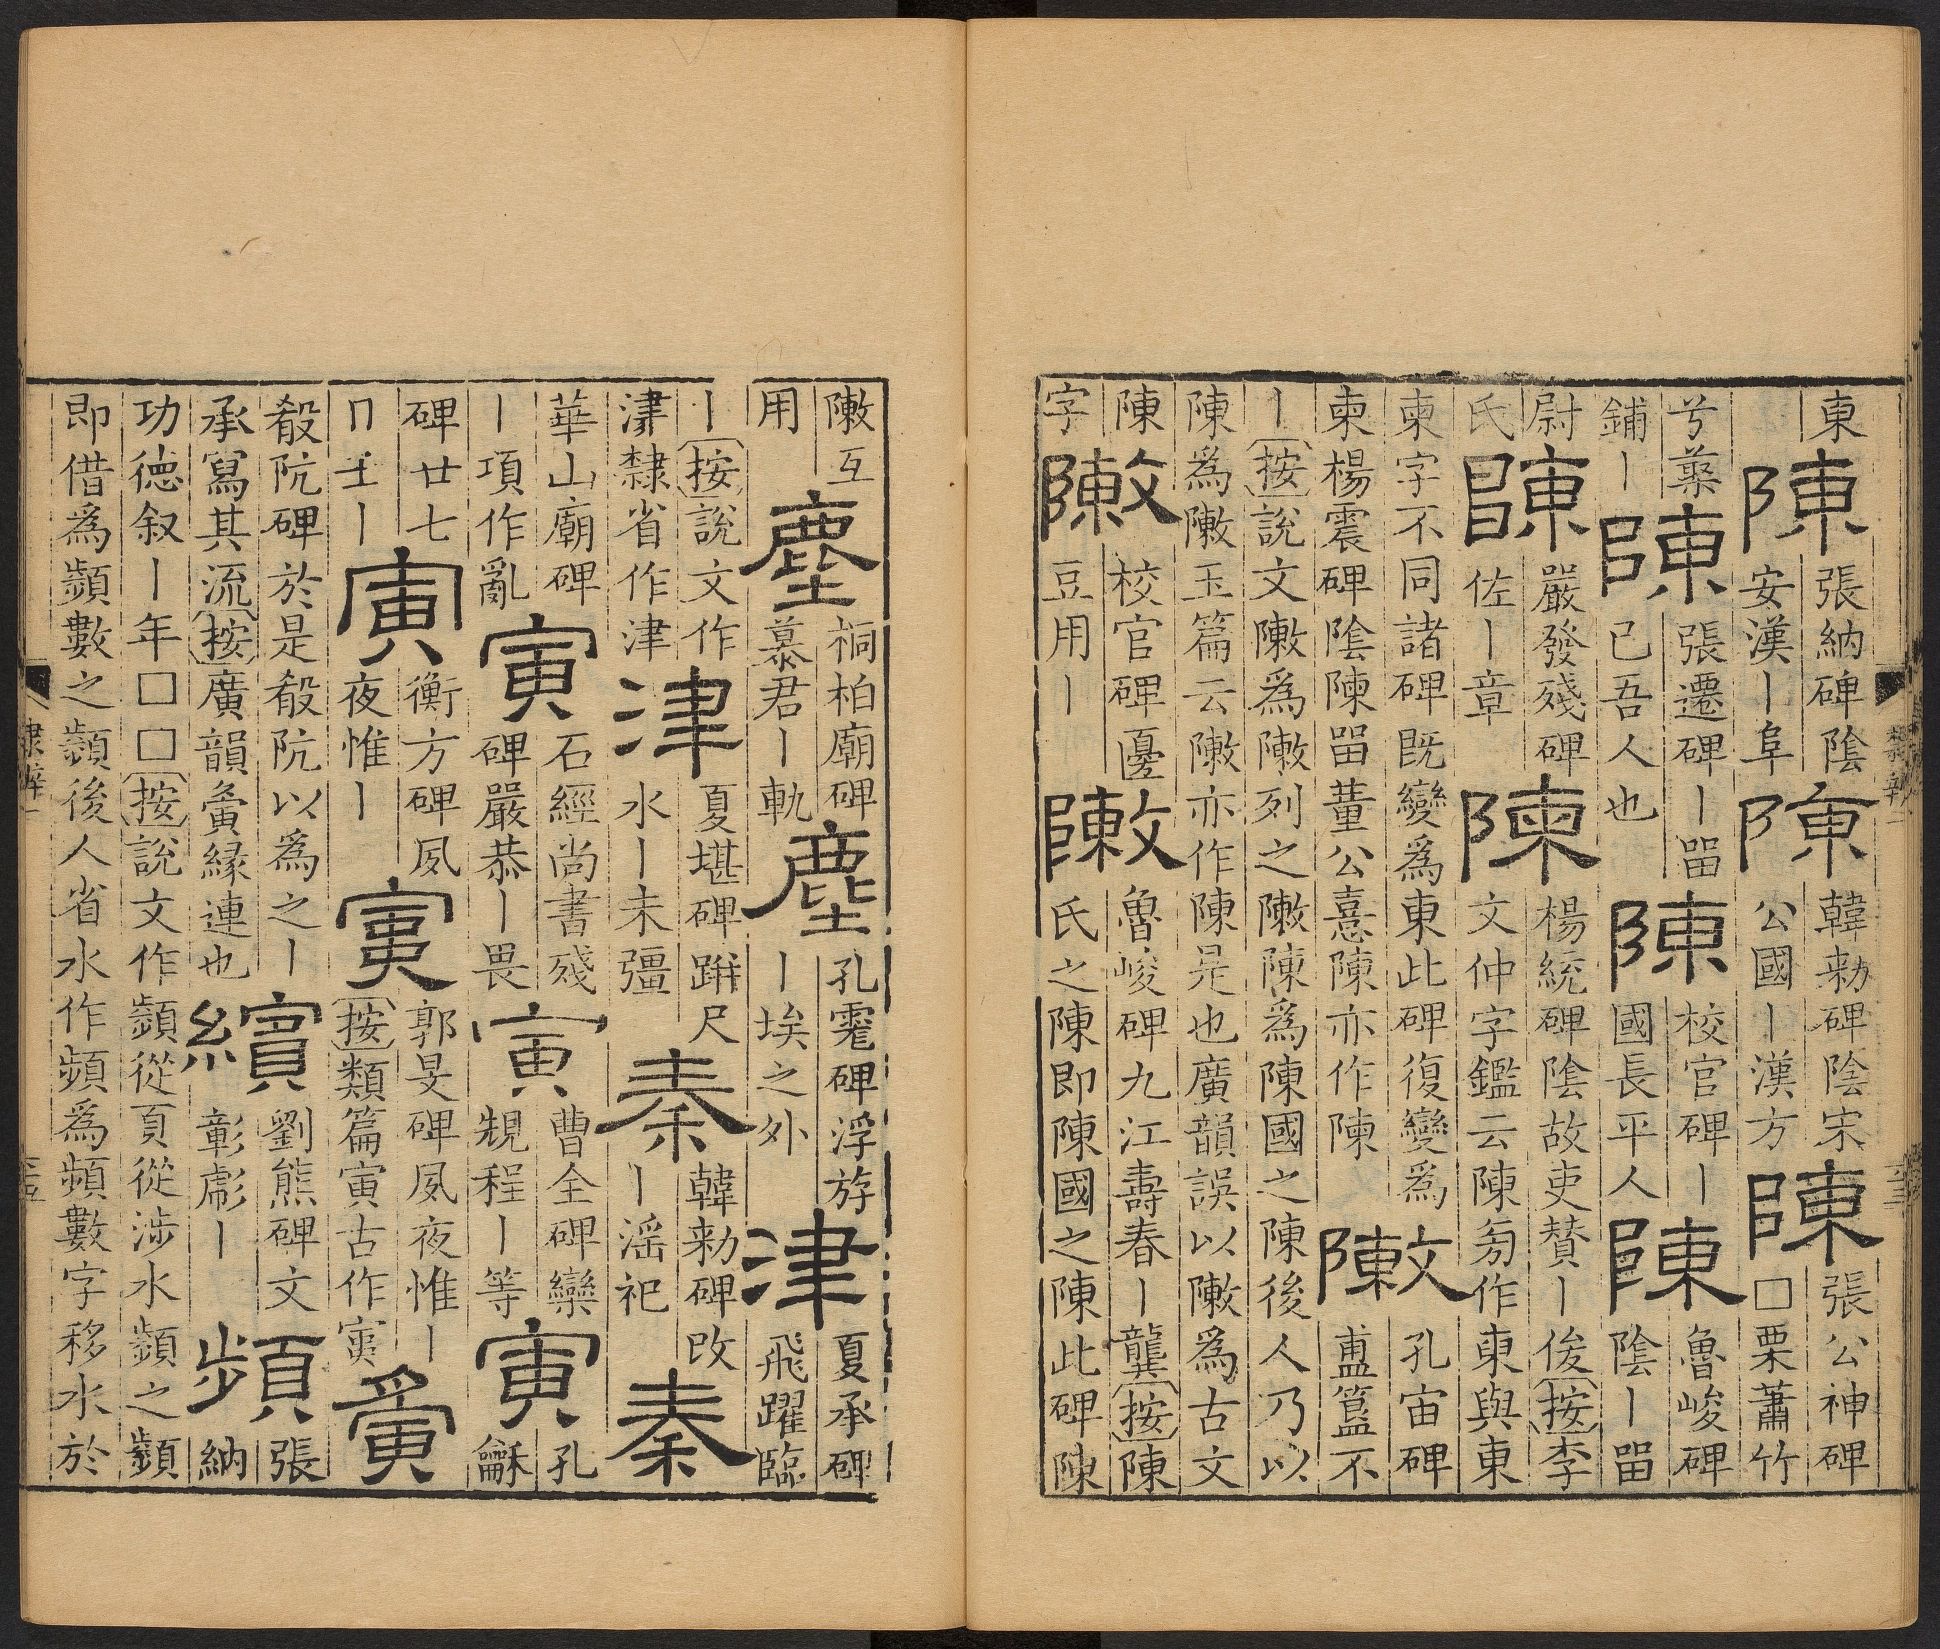 東
陳
張納碑陰
安漢丨阜
陳
韓勑碑陰宋
公國丨漢方
陳
張公神碑
□栗蕭竹
兮蘂
鋪丨
陳
張遷碑丨畱
已吾人也
陳
校官碑丨
國長平人
陳
魯峻碑
陰丨畱
尉
氏
陳
嚴發殘碑
佐丨章
陳
楊統碑陰故吏賛丨俊按李
文仲字鑑云陳旁作東與東
柬字不同諸碑既變爲東此碑復變爲
柬楊震碑陰陳畱董公憙陳亦作陳
敶
孔宙碑
簠簋不
丨按說文敶爲敶列之敶陳爲陳國之陳後人乃以
陳爲敶玉篇云敶亦作陳是也廣韻誤以敶爲古文
陳
字
敶
校官碑憂
豆用丨
敶
魯峻碑九江壽春丨龔按陳
氏之陳即陳國之陳此碑陳
敶互
用
塵
桐柏廟碑
慕君丨軌
塵
孔宙碑浮游
丨埃之外
津
夏承碑
飛躍臨
丨按說文作
津隸省作津
津
夏堪碑跰尺
水丨未彊
秦
韓勑碑改
丨滛祀
秦
華山廟碑
丨項作亂
寅
石經尚書殘
碑嚴恭丨畏
寅
曹全碑欒
規程丨等
寅
孔
龢
碑廿七
丨
寅
衡方碑夙
夜惟丨
寅
郭旻碑夙夜惟丨
按類篇寅古作寅
夤
殽阬碑於是殽阬以爲之丨
承寫其流按廣韻夤緣連也
繽
劉熊碑文
彰彪丨
頻
張
納
功德叙丨年□□按說文作顰從頁從涉水顰之顰
即借爲頻數之顰後人省水作頻爲頻數字移水於
隸辨一